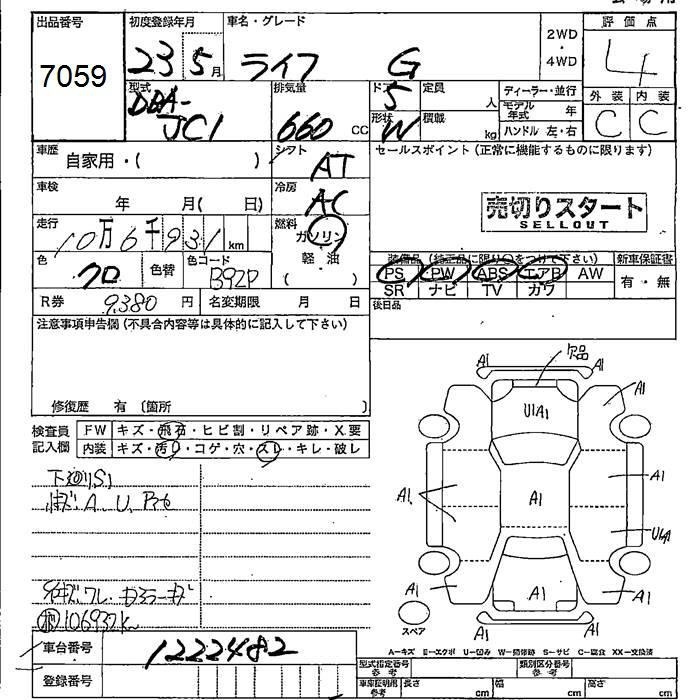 出品番号
7059
初度登録年月
23 5月
車名・グレード
ライフ G
2WD
・
4WD
評価点
4
外装 内装
C C
型式
DBA-
JC1
排気量
660 CC
ドア
5
形状
W
定員 人
積載 kg
ディーラー・並行
モデル年式 年
ハンドル 左・右
車歴
自家用・( )
シフト
AT
セールスポイント (正常に機能するものに限ります)
売切りスタート
SELLOUT
車検
年 月( 日)
冷房
AC
走行
10万6千931km
燃料
ガソリン
軽・油
( )
色
クロ
色替
色コード
B92P
装備品 (純正品に限り○をつけて下さい)
PS PW ABS エアB AW
SR ナビ TV カワ
新車保証書
有・無
R券 9,380 円
名変期限 月 日
後日品
注意事項申告欄 (不具合内容等は具体的に記入して下さい)
修復歴 有 〔箇所 〕
検査員
記入欄
FW キズ・飛石・ヒビ割・リペア跡・X要
内装 キズ・汚れ・コゲ・穴・スレ・キレ・破レ
下廻りS1
A U
106937k
欠品
A1 A1
A1
U1A1
A1
A1
A1
U1A1
A1
A1
A1
A1 A1
スペア
A−キズ E−エクボ U−凹み W−補修跡 S−サビ C−腐食 XX−交換済
車台番号
1222482
登録番号
型式指定番号
参考
類別区分番号
参考
車庫証明用
参考
長さ cm
幅 cm
高さ cm